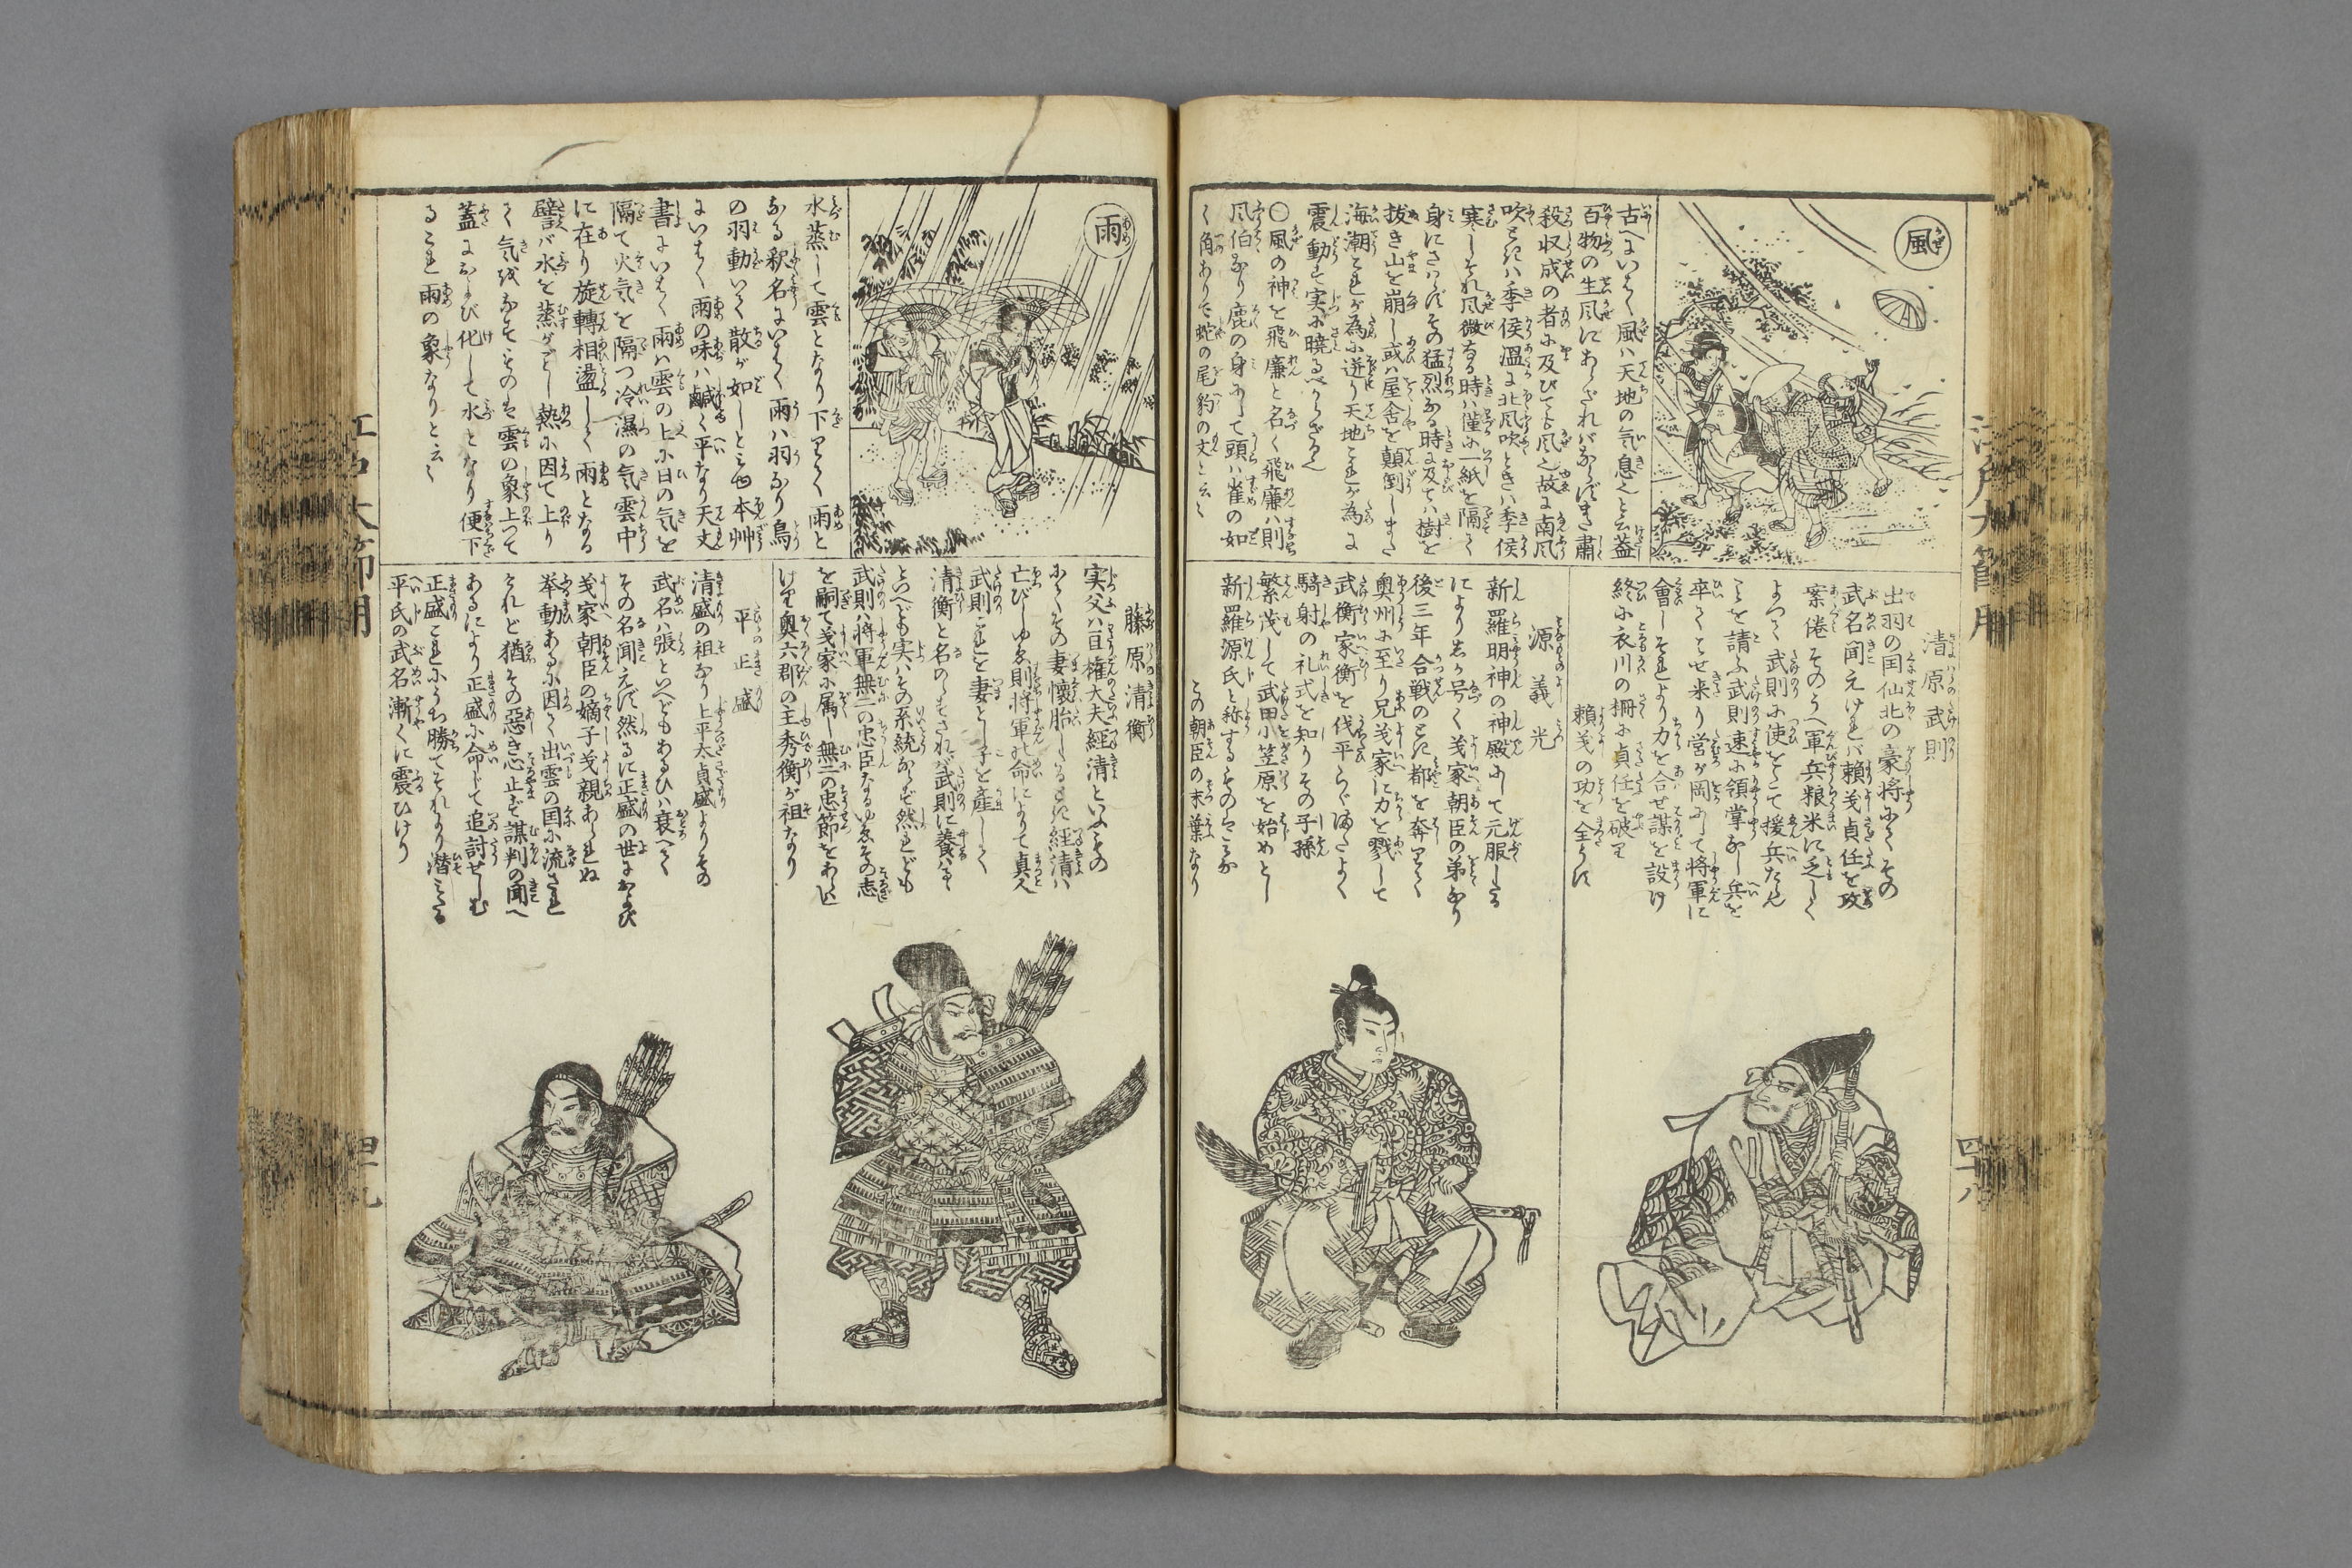 風
古へにいはく風ハ天地の気息也と云蓋
百物の生風にあらざればならずまた肅
殺収成の者に及びても風也故に南風
吹ときハ季侯温に北風吹ときハ季侯
寒しそれ風微なる時ハ僅に一紙を隔て
身にさハらずその猛烈なる時に及てハ樹を
抜き山を崩し或ハ屋舎を顛倒しまた
海潮これが為に迸り天地これが為に
震動す実に暁るべからざる也
〇風の神を飛廉と名く飛廉ハ則
風伯なり鹿の身にして頭ハ雀の如
く角ありて蛇の尾豹の文と云々
清原武則
出羽の国仙北の豪将にてその
武名聞えければ頼義貞任を攻
案倦そのうへ軍兵粮米に乏しく
よつて武則に使をして援兵たらん
ことを請ふ武則速に領掌なし兵を
卒して来り営が岡にして将軍に
會しそれより力を合せ謀を設け
終に衣川の柵に貞任を破り
頼義の功を全うす
源義光
新羅明神の神殿にして元服したる
によりしか号く義家朝臣の弟なり
後三年合戦のとき都を奔りて
奥州に至り兄義家に力を戮して
武衡家衡を伐平らぐ
騎射の礼式を知りその子孫
繁茂して武田小笠原を始めとし
新羅源氏と称するものことごとく
この朝臣の末葉なり
江戸大節用
四十八
雨
水蒸して雲となり下りて雨と
なる釈名にいはく雨ハ羽なり鳥
の羽動いて散が如しと也本艸
にいはく雨の味ハ鹹く平なり天文
書にいはく雨ハ雲の上に日の気を
隔て火気を隔つ冷濕の気雲中
に在り旋轉相盪して雨となる
譬バ水を蒸がごとし熱に因て上り
て気をなすその雲の象上つて
蓋におよび化して水となり便下
るこれ雨の象なりと云々
藤原清衡
実父ハ亘権大夫経清といふその
その妻懐胎したるとき経清ハ
亡びしゆゑ則将軍の命によりて貞久
武則これを妻とし子を産して
清衡と名のらすされば武則に養はるる
といへども実ハその系統ならず然れども
武則ハ将軍無二の忠臣なるゆゑその志
を嗣て義家に属し無二の忠節をあらはし
けり奥六郡の主秀衡が祖なり
平正盛
清盛の祖なり上平太貞盛よりその
武名ハ張といへどもあるひハ衰へて
その名聞えず然るに正盛の世におよび
義家朝臣の嫡子義親あられぬ
挙動あるに因て出雲の国に流され
されど猶その惡き心止ず謀判の聞へ
あるにより正盛に命じて追討せしむ
正盛これにうち勝てそれより潜みたる
平氏の武名漸くに震ひけり
江戸大節用
四十九